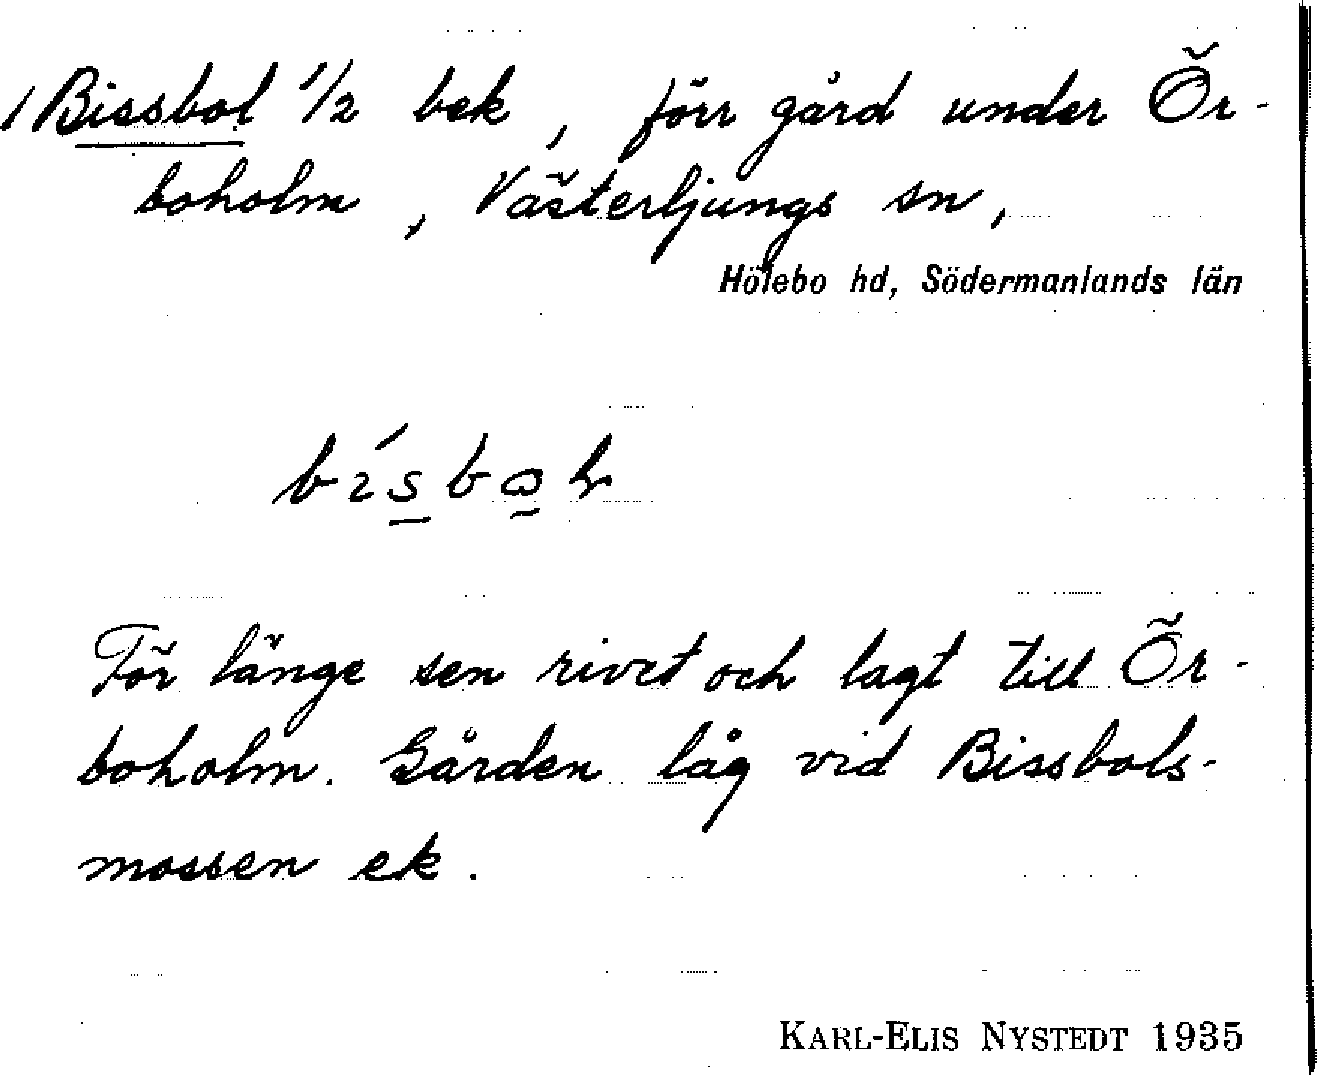 / Bissbol 1/2 bek, förr gård under Ör-
boholm, Västerljungs sn,
Hölebo hd, Södermanlands län
För länge sen rivet och lagt till Ör-
boholm. Gården låg vid Bissbols-
mossen ek.
KARL-ELIS NYSTEDT 1935